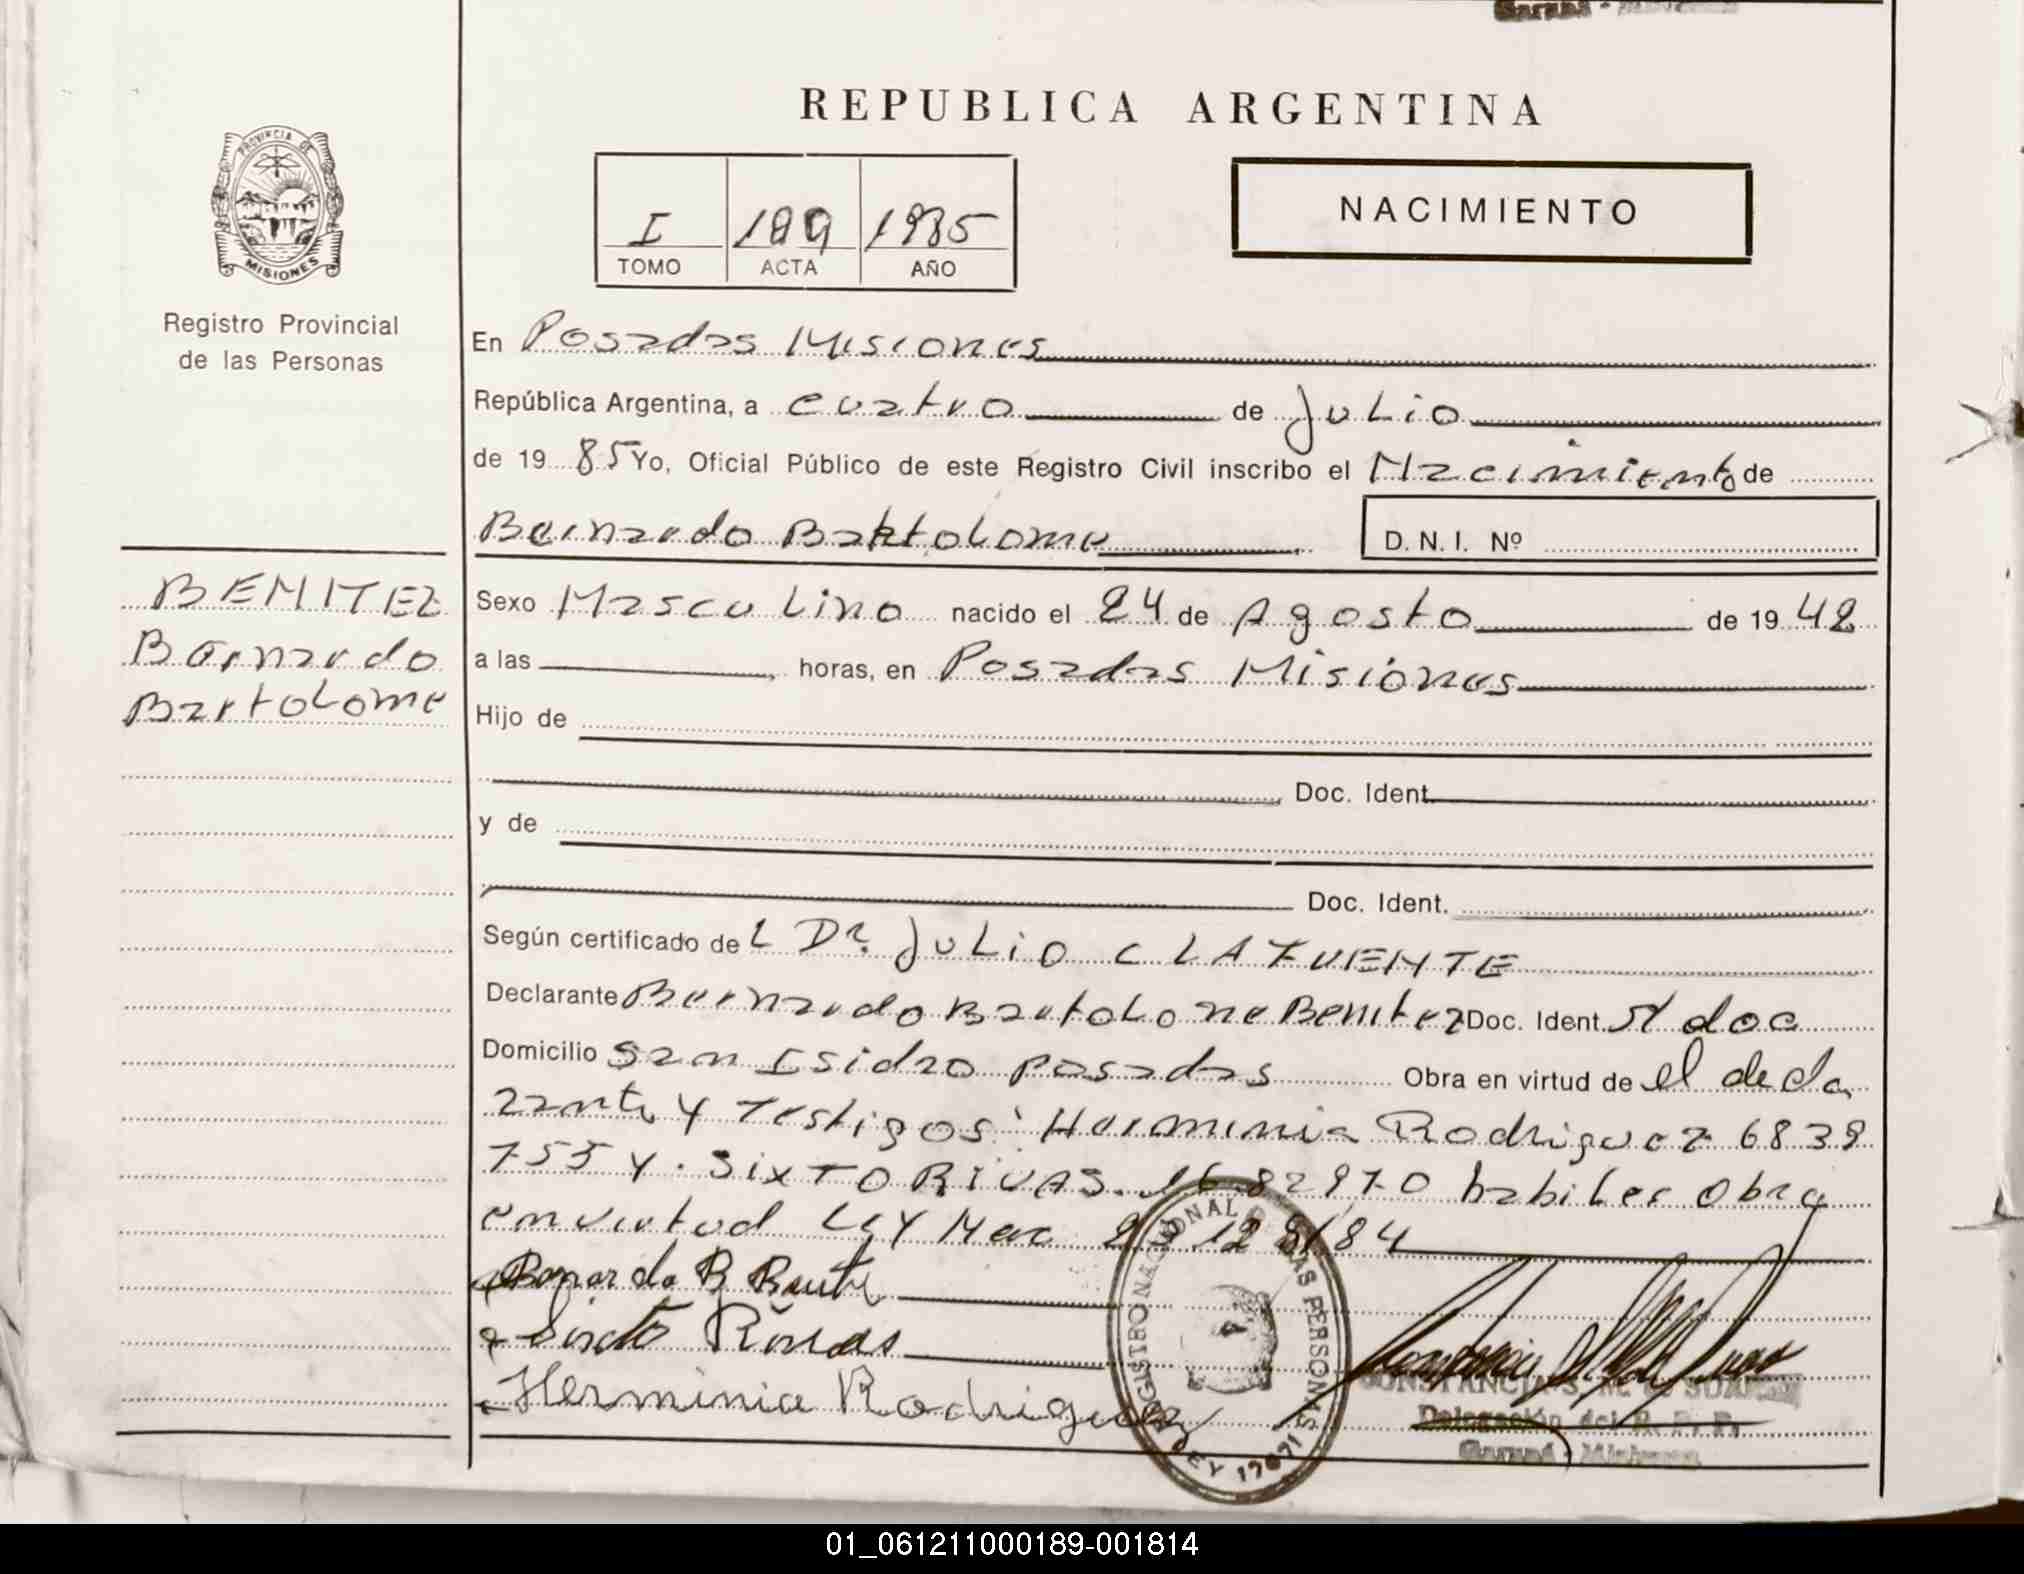 REPUBLICA ARGENTINA
PROVINCIA DE
MISIONES
Registro Provincial
de las Personas
I 189 1985
TOMO ACTA AÑO
NACIMIENTO
En Posadas Misiones
República Argentina, a cuatro de Julio
de 19 85 Yo, Oficial Público de este Registro Civil inscribo el Nacimiento de
Bernardo Bartolome D.N.I. Nº
BENITEZ
Bernardo
Bartolome
Sexo Masculino nacido el 24 de Agosto de 19 42
a las horas, en Posadas Misiones
Hijo de
Doc. Ident.
y de
Doc. Ident.
Según certificado de L Dr. Julio C LAFUENTE
Declarante Bernardo Bartolome Benitez Doc. Ident. S/ doc
Domicilio San Isidro Posadas Obra en virtud de el decla
rante y Testigos Herminia Rodriguez 6839
755 y SIXTO RIVAS. habiles Obra
en virtud Ley Nac 23128/84
Bernardo B
Sixto Rivas
Herminia Rodriguez
REGISTRO NACIONAL DE LAS PERSONAS
LEY 17671
Delegación del R. P. P.
Garupá - Misiones
01_061211000189-001814